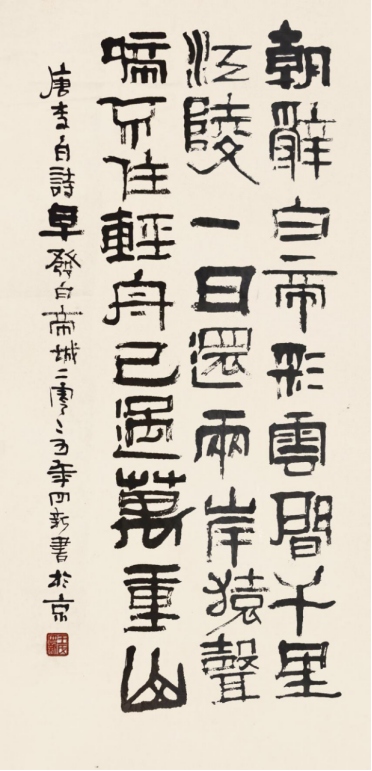 朝辭白帝彩雲間千里
江陵一日還兩岸猿聲
啼不住輕舟已過萬重山
唐李白詩早發白帝城二零々五年四新書於京